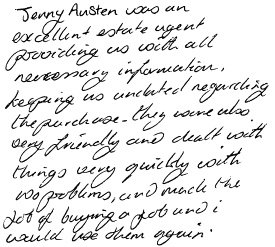 Jenny Austen was an
excellent estate agent
providing us with all
necessary information,
keeping us updated regarding
the purchase - they were also
very friendly and dealt with
things very quickly with
no problems, and made the
job of buying a job and i
would use them again.